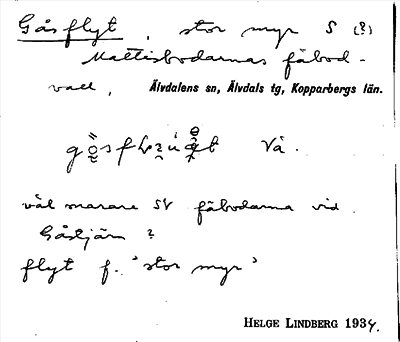 Gåsflyt, stor myr S (?)
Mattisbodarnas fäbod-
vall, Älvdalens sn, Älvdals tg, Kopparbergs län.
Vå.
väl snarare SV fäbodarna vid
Gåstjärn ?
flyt f. 'stor myr'
HELGE LINDBERG 1934.